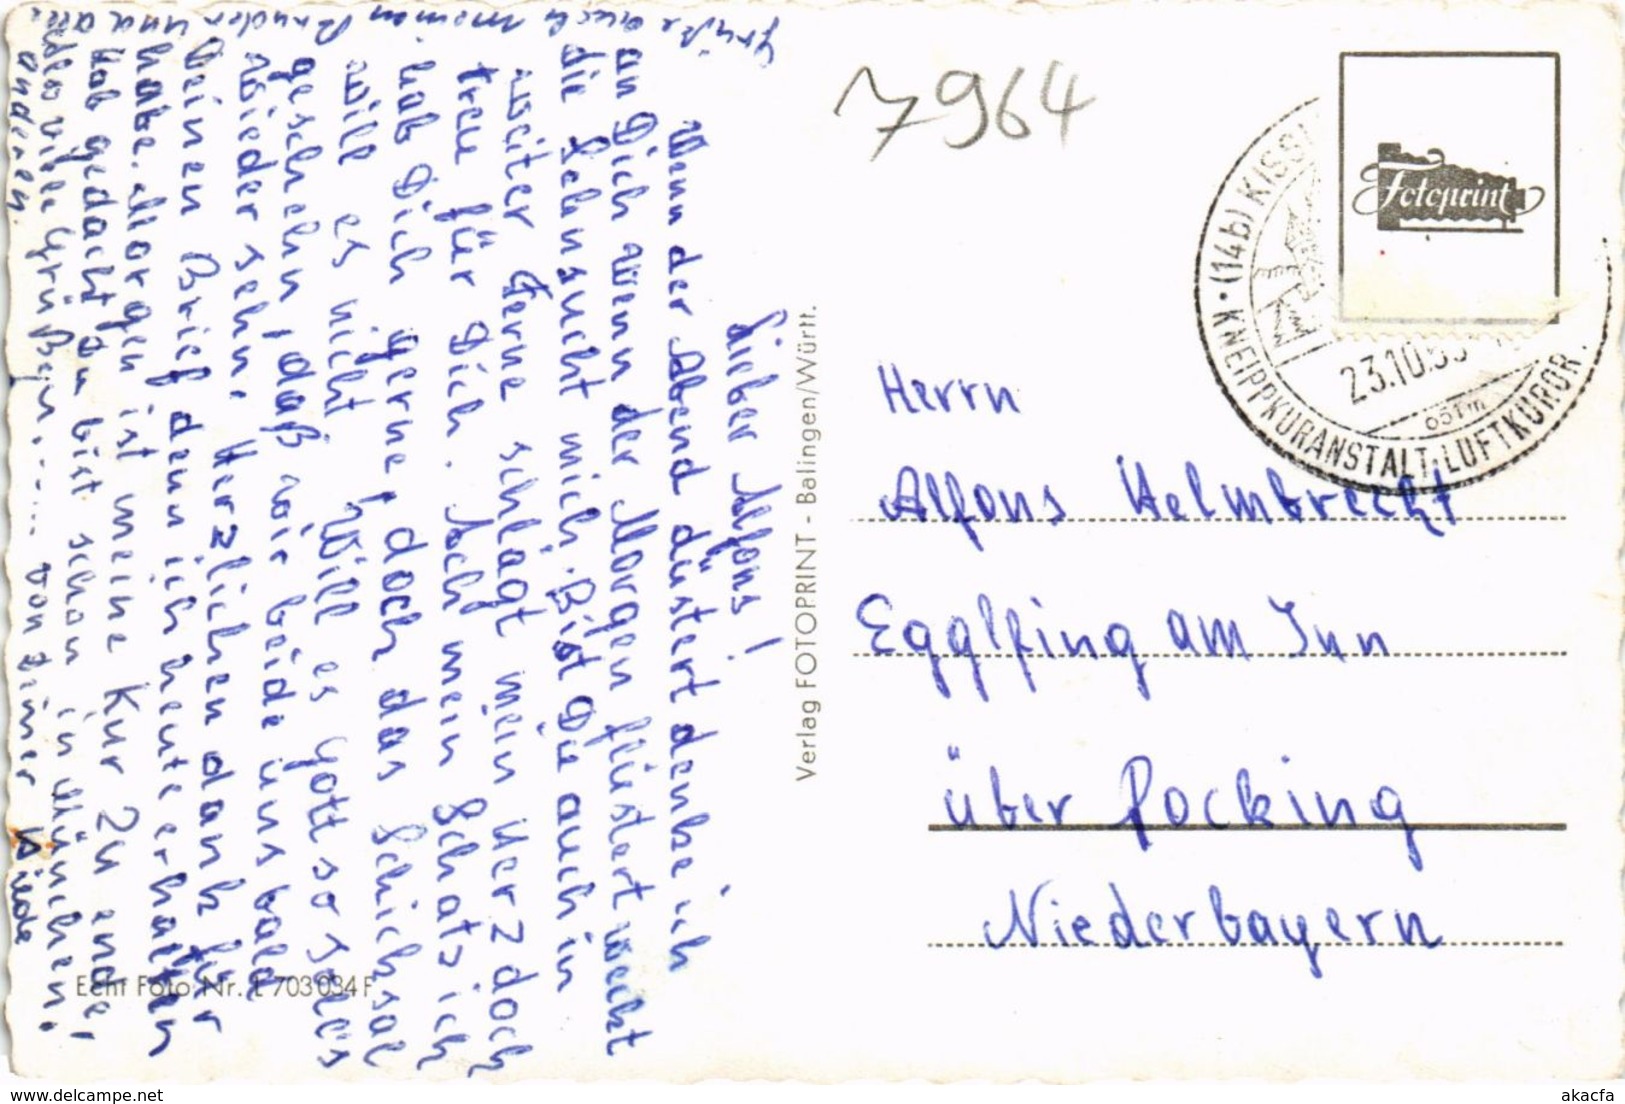 Lieber Alfons!
Wenn der Abend düstert denke ich
an Dich wenn der Morgen flüstert weckt
die Sehnsucht mich. Bist Du auch in
weiter Ferne schlägt mein Herz doch
treu für Dich. Ach mein Schatz ich
hab Dich gerne, doch das Schicksal
will es nicht. Will es Gott so soll's
geschehn, daß wir beide uns bald
wieder sehn. Herzlichen dank für
Deinen Brief denn ich heute erhalten
habe. Morgen ist meine Kur zu ende,
Hab gedacht Du bist schon in München.
also viele Grüße, ..... von Deiner
grüße auch meinen Bruder und
anderen.
7964
(14b) KISS
KNEIPPKURANSTALT·LUFTKUROR
23.10.5
Fotoprint
Herrn
Alfons Helmbrecht
Egglfing am Inn
über Pocking
Niederbayern
Verlag FOTOPRINT - Balingen/Württ.
Echt Foto Nr. L 703034F
akacfa